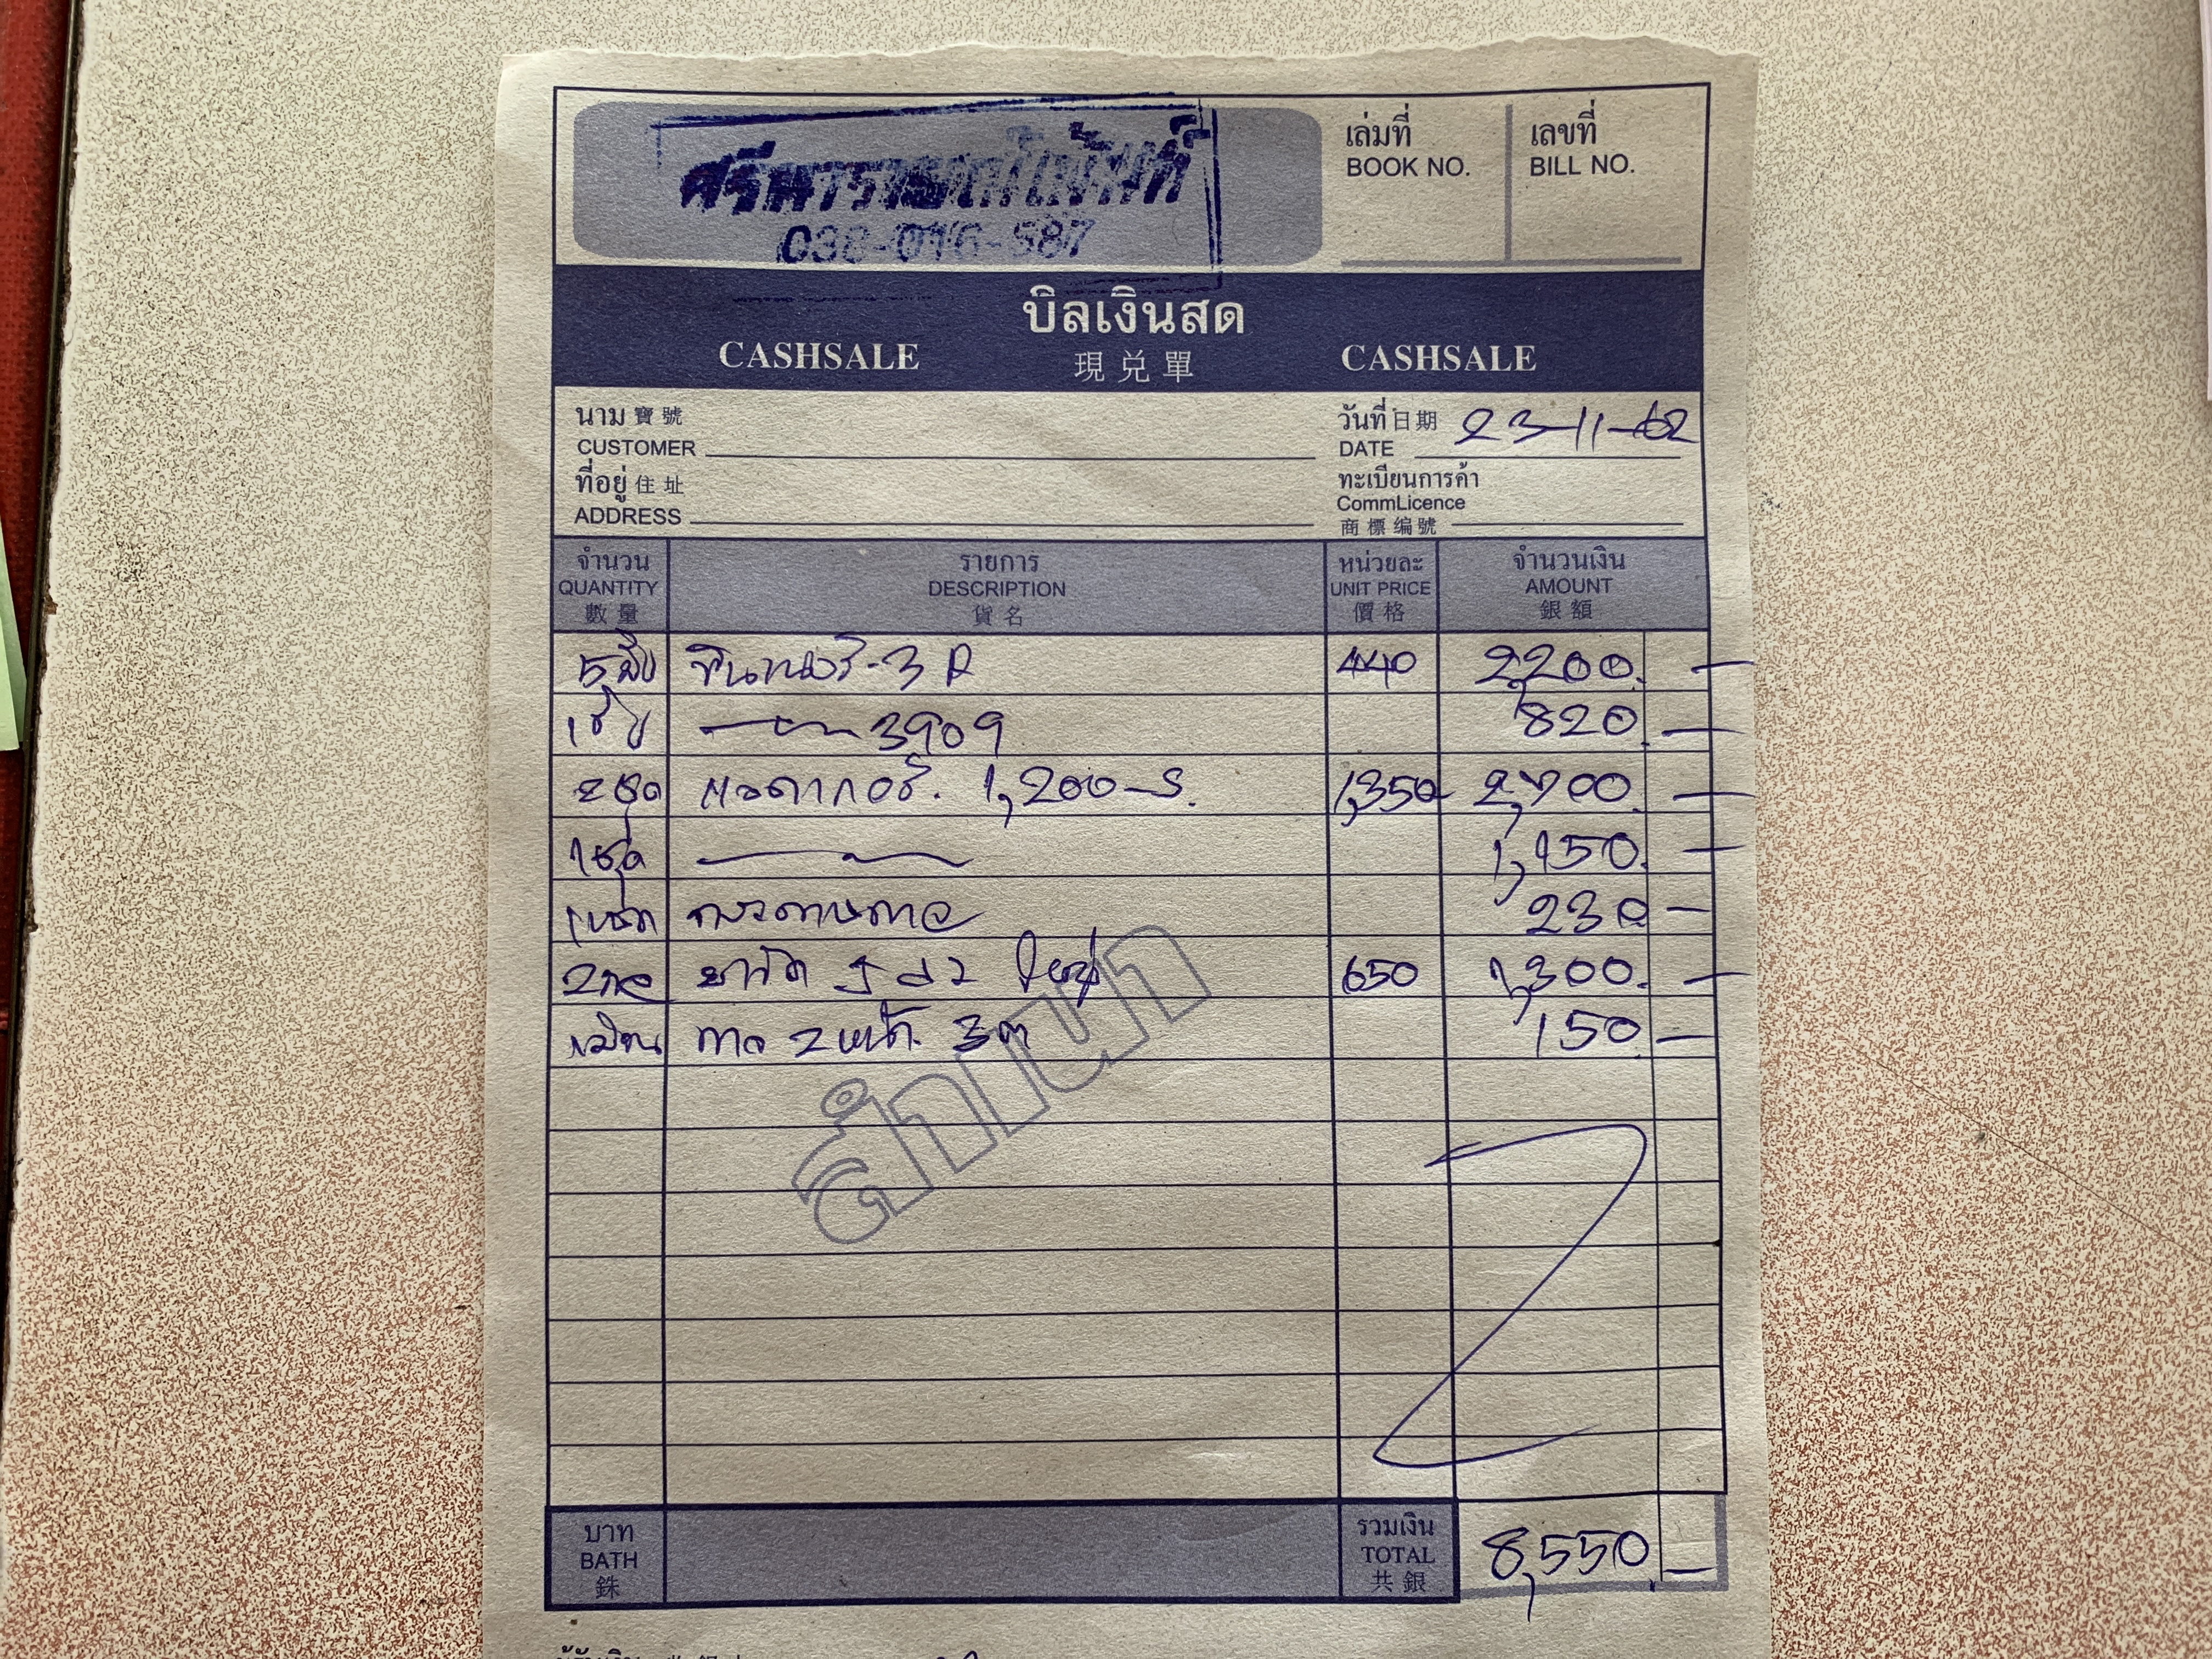 038-016-587
เล่มที่ เลขที่
BOOK NO. BILL NO.
บิลเงินสด
CASHSALE 現兌單 CASHSALE
นาม 寶號 วันที่ 日期 23-11-62
CUSTOMER DATE
ที่อยู่ 住址 ทะเบียนการค้า
ADDRESS CommLicence
商標编號
จำนวน รายการ หน่วยละ จำนวนเงิน
QUANTITY DESCRIPTION UNIT PRICE AMOUNT
數量 貨名 價格 銀額
5 ทินเนอร์-3 A 440 2,200.-
3909 820.-
2 ชุด แลคเกอร์. 1,200-S. 1,350 2,700.-
1 ชุด 1,150.-
กระดาษกาว 230-
650 1,300.-
กาว 2 หน้า 3 150.-
สำเนา
บาท รวมเงิน
BATH TOTAL 8,550.-
銖 共銀